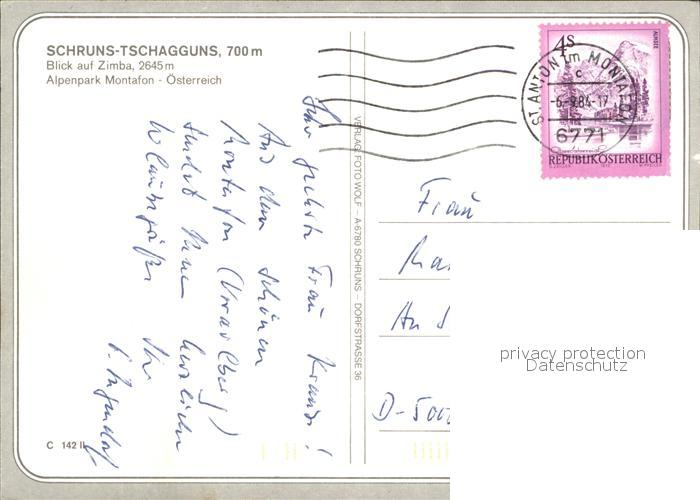 SCHRUNS-TSCHAGGUNS, 700 m
Blick auf Zimba, 2645 m
Alpenpark Montafon - Österreich
4s
ALMSEE
ST. ANTON im MONTAFON
c
-6.-9.84-17
6771
REPUBLIK ÖSTERREICH
Sehr geehrte Frau Krause!
Aus dem schönen
Montafon (Vorarlberg)
sendet Ihnen herzliche
Urlaubsgrüße Ihr
VERLAG FOTO WOLF – A-6780 SCHRUNS – DORFSTRASSE 36
Frau
An
D-5000
C 142
privacy protection
Datenschutz